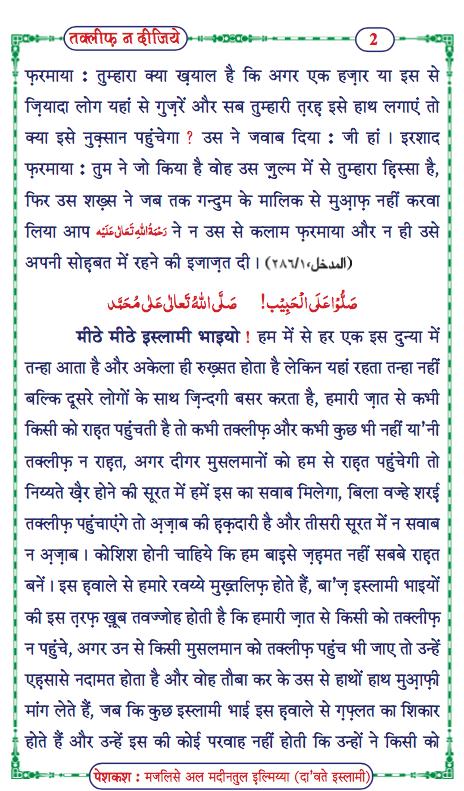 तक्लीफ़ न दीजिये
2
फ़रमाया : तुम्हारा क्या ख़याल है कि अगर एक हज़ार या इस से
ज़ियादा लोग यहां से गुज़रें और सब तुम्हारी त़रह़ इसे हाथ लगाएं तो
क्या इसे नुक़्सान पहुंचेगा ? उस ने जवाब दिया : जी हां । इरशाद
फ़रमाया : तुम ने जो किया है वोह उस ज़ुल्म में से तुम्हारा हिस्सा है,
फिर उस शख़्स ने जब तक गन्दुम के मालिक से मुआ़फ़ नहीं करवा
लिया आप رَحْمَةُ اللّٰهِ تَعَالٰى عَلَيْه ने न उस से कलाम फ़रमाया और न ही उसे
अपनी सोह़बत में रहने की इजाज़त दी । (المدخل، ٢٨٦/١)
صَلُّوْا عَلَى الْحَبِيْب! صَلَّى اللّٰهُ تَعَالٰى عَلٰى مُحَمَّد
मीठे मीठे इस्लामी भाइयो ! हम में से हर एक इस दुन्या में
तन्हा आता है और अकेला ही रुख़्सत होता है लेकिन यहां रहता तन्हा नहीं
बल्कि दूसरे लोगों के साथ ज़िन्दगी बसर करता है, हमारी ज़ात से कभी
किसी को राह़त पहुंचती है तो कभी तक्लीफ़ और कभी कुछ भी नहीं या'नी
तक्लीफ़ न राह़त, अगर दीगर मुसलमानों को हम से राह़त पहुंचेगी तो
निय्यते ख़ैर होने की सूरत में हमें इस का सवाब मिलेगा, बिला वज्हे शरई
तक्लीफ़ पहुंचाएंगे तो अ़ज़ाब की ह़क़दारी है और तीसरी सूरत में न सवाब
न अ़ज़ाब । कोशिश होनी चाहिये कि हम बाइसे ज़ह़मत नहीं सबबे राह़त
बनें । इस ह़वाले से हमारे रवय्ये मुख़्तलिफ़ होते हैं, बा'ज़ इस्लामी भाइयों
की इस त़रफ़ ख़ूब तवज्जोह होती है कि हमारी ज़ात से किसी को तक्लीफ़
न पहुंचे, अगर उन से किसी मुसलमान को तक्लीफ़ पहुंच भी जाए तो उन्हें
एह़सासे नदामत होता है और वोह तौबा कर के उस से हाथों हाथ मुआ़फ़ी
मांग लेते हैं, जब कि कुछ इस्लामी भाई इस ह़वाले से ग़फ़्लत का शिकार
होते हैं और उन्हें इस की कोई परवाह नहीं होती कि उन्हों ने किसी को
पेशकश : मजलिसे अल मदीनतुल इल्मिय्या (दा'वते इस्लामी)